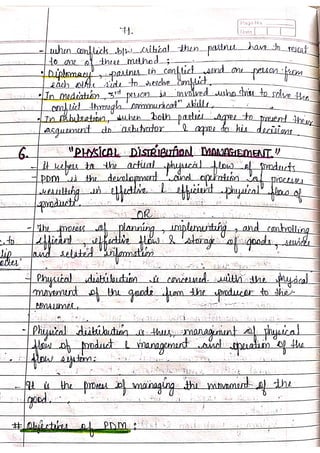 71.
Page No.
Date
- when conflicts b/w critical then partner have to resort
to one of three method:
• Diplomacy, partner in conflict send one person from
each other side to resolve conflict.
• In mediation, 3rd person is involved who tries to solve the
conflict through "communicat" skills.
• In Arbitration, when both parties agree to present their
arguement do arbitrator & agree to his decisions.
6. "PHYSICAL DISTRIBUTION MANAGEMENT."
- It refers to the actual physical flow of products
- PDM is the development and operation of processes
resulting in effective & efficient physical flow of
products.
OR
- The process of planning, implementing, and controlling
efficient, effective flow & storage of goods, services
and related information
- Physical distribution is concerned with the physical
movement of the goods from the producer to the
consumer.
- Physical distribution is thus, management of physical
flow of product & management and operation of the
flow system.
- It is the process of managing the movement of the
good.
# Objectives of PDM: